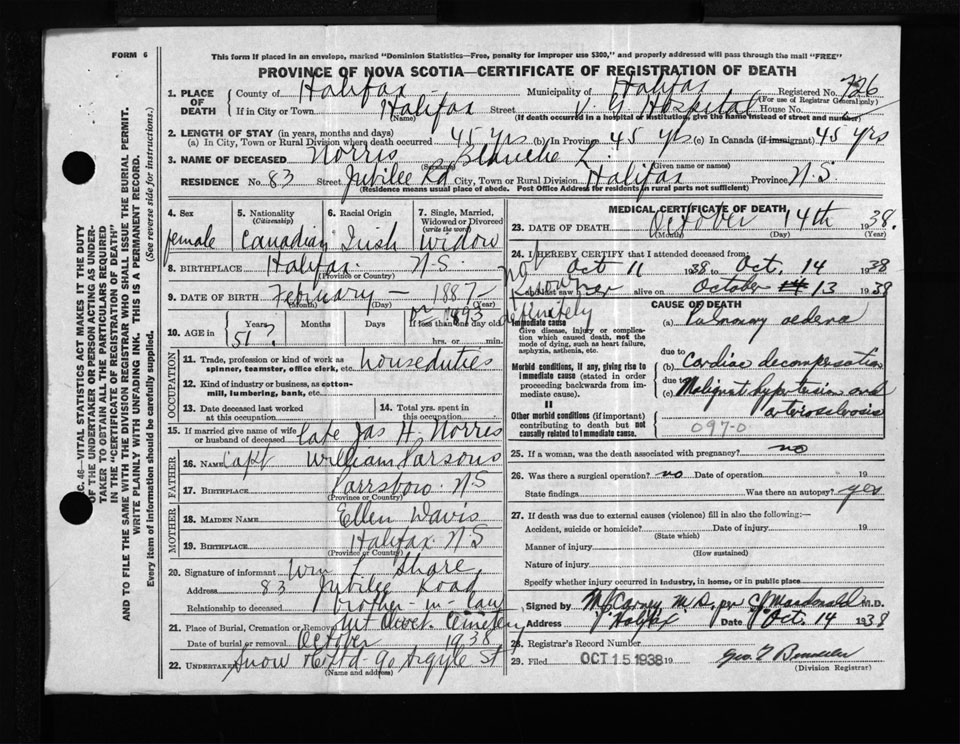 FORM 6
This form if placed in an envelope, marked "Dominion Statistics—Free, penalty for improper use $300," and properly addressed will pass through the mail "FREE"
PROVINCE OF NOVA SCOTIA—CERTIFICATE OF REGISTRATION OF DEATH
1. PLACE OF DEATH
County of Halifax Municipality of Halifax Registered No. 726
(For use of Registrar General only)
If in City or Town Halifax Street V. G. Hospital House No.
(Name) (If death occurred in a hospital or institution, give the name instead of street and number)
2. LENGTH OF STAY (in years, months and days)
(a) In City, Town or Rural Division where death occurred 45 yrs (b) In Province 45 yrs (c) In Canada (if immigrant) 45 yrs
3. NAME OF DECEASED Norris Blanche L.
(Surname) (Given name or names)
RESIDENCE No. 83 Street Jubilee Rd City, Town or Rural Division Halifax Province N.S.
(Residence means usual place of abode. Post Office Address for residents in rural parts not sufficient)
4. Sex
female
5. Nationality
(Citizenship)
Canadian
6. Racial Origin
Irish
7. Single, Married, Widowed or Divorced
(write the word)
Widow
8. BIRTHPLACE Halifax N.S.
(Province or Country)
9. DATE OF BIRTH February — 1887
(Month) (Day) (Year)
or 1893
10. AGE in
Years Months Days If less than one day old
51? hrs. or min.
OCCUPATION
11. Trade, profession or kind of work as spinner, teamster, office clerk, etc. houseduties
12. Kind of industry or business, as cotton-mill, lumbering, bank, etc.
13. Date deceased last worked at this occupation
14. Total yrs. spent in this occupation
15. If married give name of wife or husband of deceased Late Jas H. Norris
FATHER
16. Name Capt William Parsons
17. Birthplace Parrsboro N.S
(Province or Country)
MOTHER
18. Maiden Name Ellen Davis
19. Birthplace Halifax N.S
(Province or Country)
20. Signature of informant Wm L Share
Address 83 Jubilee Road
Relationship to deceased brother-in-law
21. Place of Burial, Cremation or Removal Mt Olivet Cemetery
Date of burial or removal October 1938
22. Undertaker Snow & Co Ltd - 90 Argyle St
(Name and address)
MEDICAL CERTIFICATE OF DEATH
23. DATE OF DEATH October 14th 1938.
(Month) (Day) (Year)
24. I HEREBY CERTIFY that I attended deceased from:
Oct 11 1938 to Oct. 14 1938
and last saw h er alive on October 14 13 1938
not known definitely
CAUSE OF DEATH
I
Immediate cause
Give disease, injury or complication which caused death, not the mode of dying, such as heart failure, asphyxia, asthenia, etc.
(a) Pulmonary oedema
Morbid conditions, if any, giving rise to immediate cause (stated in order proceeding backwards from immediate).
due to
(b) Cardiac decompensation
due to
(c) Malignant hypertension and arteriosclerosis
II
Other morbid conditions (if important) contributing to death but not causally related to immediate cause.
097-0
25. If a woman, was the death associated with pregnancy? no
26. Was there a surgical operation? no Date of operation 19
State findings Was there an autopsy? yes
27. If death was due to external causes (violence) fill in also the following:—
Accident, suicide or homicide? Date of injury 19
(State which)
Manner of injury
(How sustained)
Nature of injury
Specify whether injury occurred in industry, in home, or in public place
Signed by M.D. per Macdonald M.D.
Address Halifax Date Oct. 14 1938
28. Registrar's Record Number
29. Filed OCT 15 1938 19
(Division Registrar)
G. 46—VITAL STATISTICS ACT MAKES IT THE DUTY
OF THE UNDERTAKER OR PERSON ACTING AS UNDER-
TAKER TO OBTAIN ALL THE PARTICULARS REQUIRED
IN THE "CERTIFICATE OF REGISTRATION OF DEATH"
AND TO FILE THE SAME WITH THE DIVISION REGISTRAR WHO SHALL ISSUE THE BURIAL PERMIT.
WRITE PLAINLY WITH UNFADING INK. THIS IS A PERMANENT RECORD.
Every item of information should be carefully supplied. (See reverse side for instructions.)